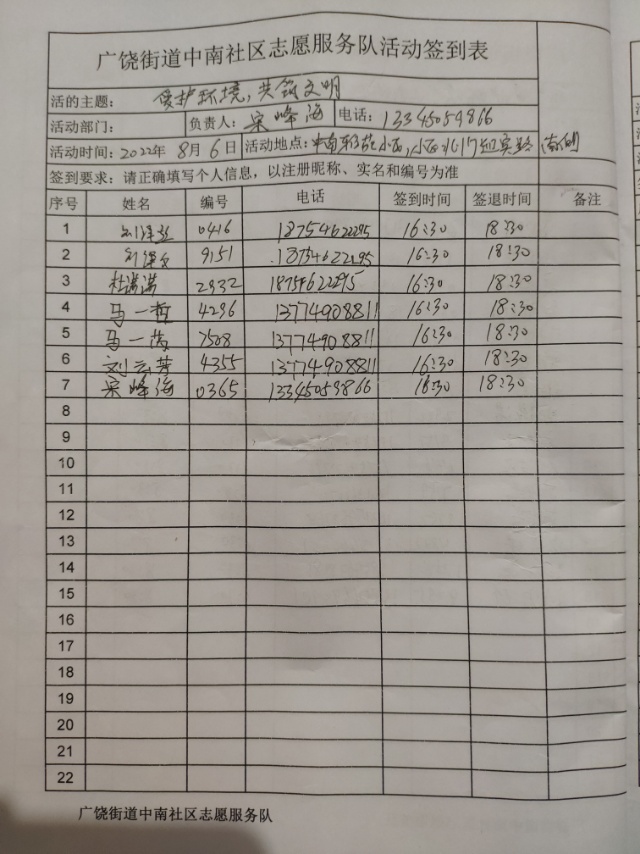 广饶街道中南社区志愿服务队活动签到表
活的主题: 爱护环境,共筑文明
活动部门: 负责人: 宋峰海 电话: 13345059866
活动时间: 2022年8月6日 活动地点: 小区北门迎宾路南侧
签到要求: 请正确填写个人信息,以注册昵称、实名和编号为准
序号 姓名 编号 电话 签到时间 签退时间 备注
1 0416 18754622295 16:30 18:30
2 9151 18754622295 16:30 18:30
3 杜潇潇 2932 18754622295 16:30 18:30
4 马一哲 4296 13774908811 16:30 18:30
5 马一茜 7508 13774908811 16:30 18:30
6 刘云芳 4355 13774908811 16:30 18:30
7 宋峰海 0365 13345059866 16:30 18:30
8
9
10
11
12
13
14
15
16
17
18
19
20
21
22
广饶街道中南社区志愿服务队